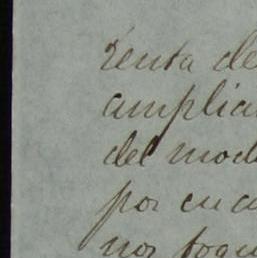 renta de
amplia
del mod
por cu
nos foqu